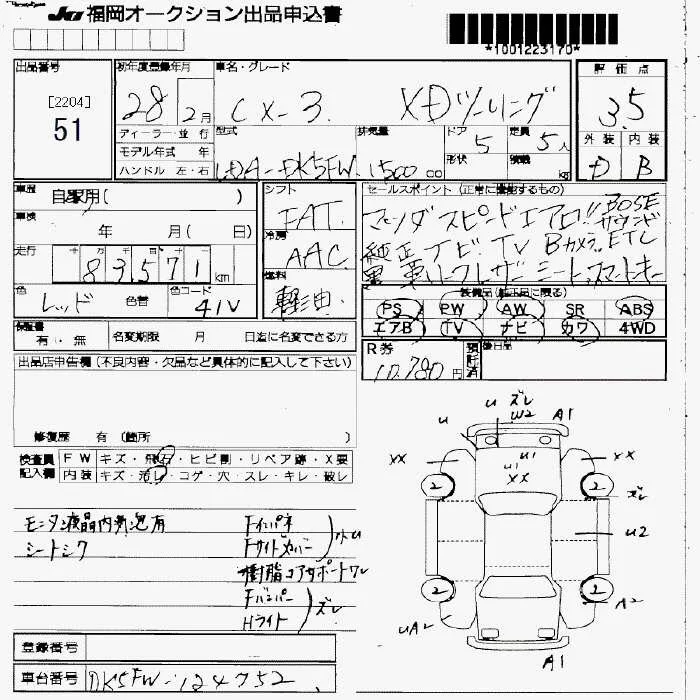 JU 福岡オークション出品申込書
*1001223170*
出品番号 [2204] 51
初年度登録年月 28 2月
車名・グレード CX-3 XDツーリング
評価点 3.5
外装 D 内装 B
ディーラー・並行
モデル年式 年
ハンドル 左・右
型式 LDA-DK5FW
排気量 1500 cc
ドア 5
形状
定員 5人
積載 kg
車歴 自家用( )
車検 年 月( 日)
走行 十万千百十 83571 km
色 レッド 色替 色コード 41V
シフト FAT
冷房 AAC
燃料 軽油
セールスポイント (正常に機能するもの)
マツダスピードエアロ!! BOSEサウンド
純正ナビ TV Bカメラ ETC
黒革 スマートキー
装備品(純正品に限る)
PS PW AW SR ABS
エアB TV ナビ カワ 4WD
保証書 有・無
名変期限 月 日迄に名変できる方
R券 10,780円 預託済
後日品
出品店申告欄 (不良内容・欠品など具体的に記入して下さい)
修復歴 有 (箇所
検査員記入欄
FW キズ・飛石・ヒビ割・リペア跡・X要
内装 キズ・汚レ・コゲ・穴・スレ・キレ・破レ
モニター液晶内気泡有
シートシワ
Fインパネ
Fサイドカバー
樹脂コアサポートワレ
Fバンパー
Hライト
ズレ
U U ズレ W2 A1
XX U1 U1 XX XX
2 2 ズレ
U2
2 2 A2
UA2
A1
登録番号
車台番号 DK5FW-124752